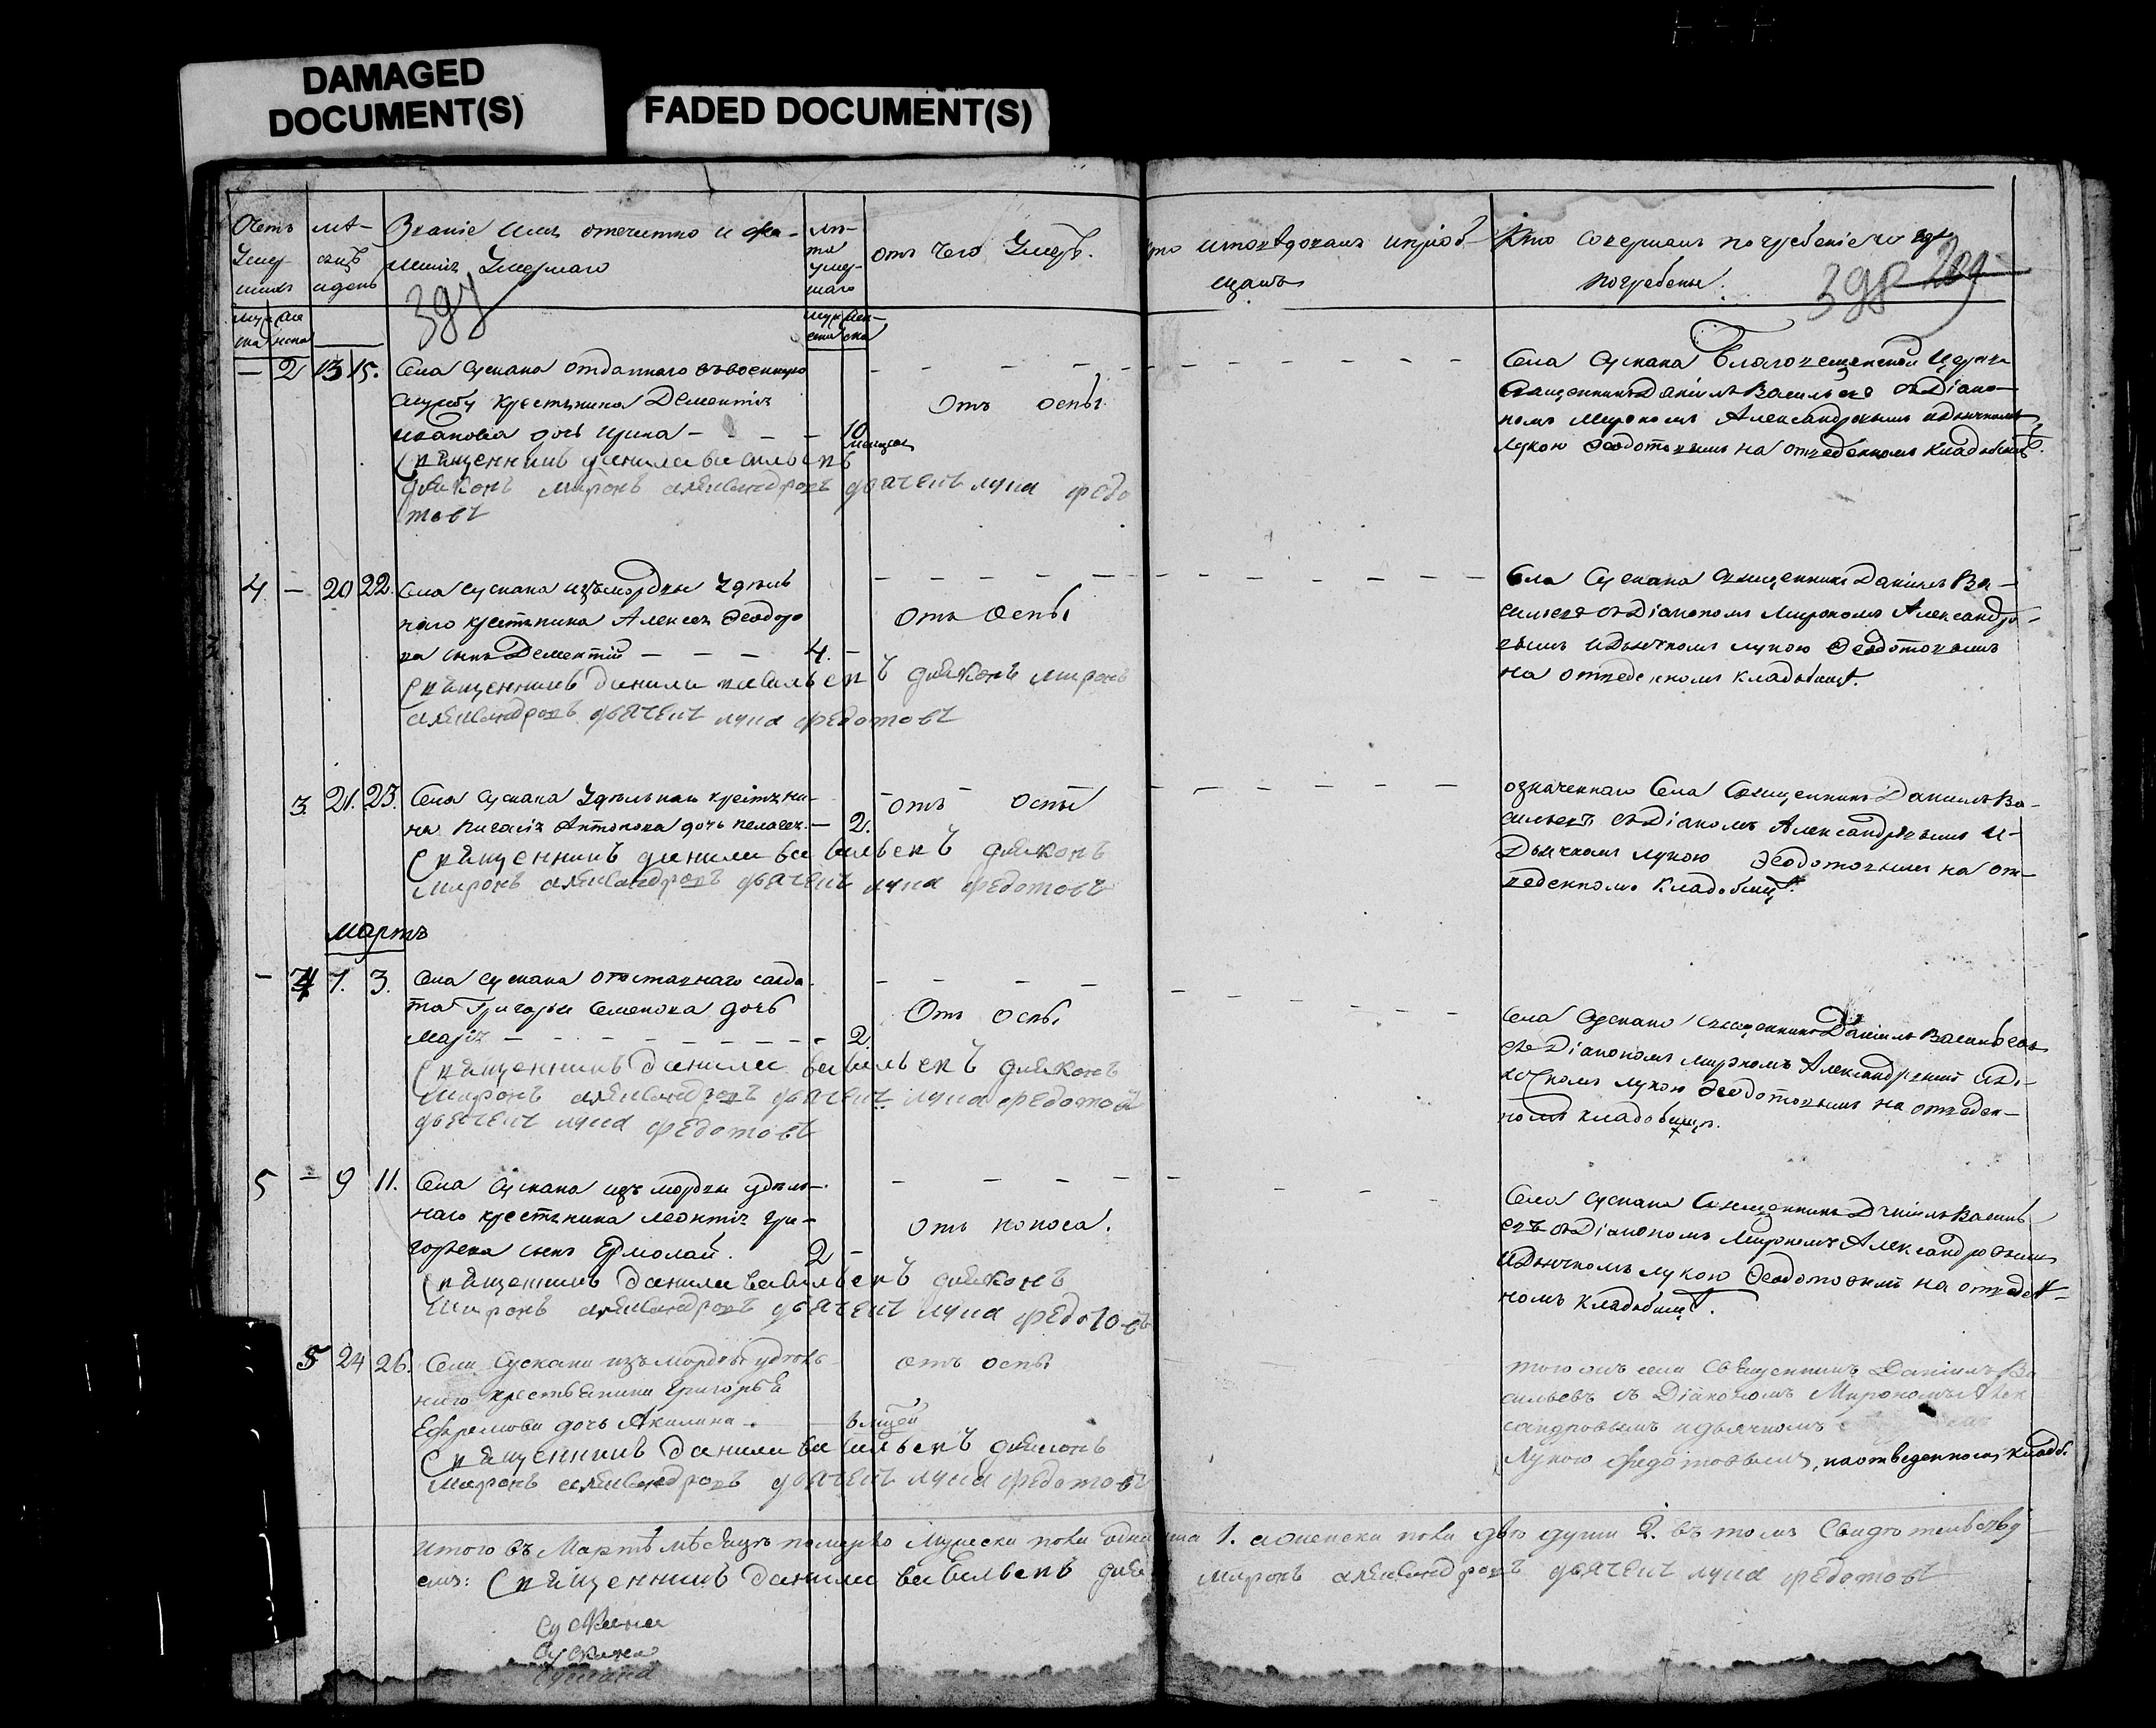 DAMAGED
DOCUMENT(S)
FADED DOCUMENT(S)
Счетъ
Умер-
шихъ
мѣ-
сяцъ
и день
Званіе имя отечество и фа-
милія Умершаго
лѣ-
та
умер-
шаго
отъ чего Умеръ.
кто исповѣдовалъ и пріоб-
щалъ
Кто совершалъ погребеніе и где
погребены.
397
398
- 2 13 15. Села Сускана отданнаго въ военную
службу крестьянина Дементія
Иванова дочь Ирина - - - - 10
месяцов
Отъ оспы
Священникъ данила васильевъ
диаконъ миронъ александровъ дьячекъ лука федо
товъ
Села Сускана Благовещенской Церкви
Священникъ Даніилъ Васильевъ съ Діако-
номъ Мирономъ Александровымъ и дьячкомъ
Лукою Ѳеодотовымъ на отведенномъ кладбищѣ.
4 - 20 22. Села Сускана изъ мордвы Удѣль
наго крестьянина Алексея Ѳеодоро
ва сынъ Дементій - - - 4. -
Отъ Оспы
Священникъ данила васильевъ диаконъ миронъ
александровъ дьячекъ лука федотовъ
Села Сускана Священникъ Даніилъ Ва-
сильевъ съ Діакономъ Мирономъ Александро-
вымъ и Дьячкомъ лукою Ѳеодотовымъ
на отведенномъ кладбищѣ.
3. 21. 23. Села Сускана Удѣльнаго крестьяни-
на Антонова дочь пелагея. - 2.
отъ оспы
Священникъ данила васильевъ диаконъ
миронъ александровъ дьячекъ лука федотовъ
означеннаго Села Священникъ Даніилъ Ва-
сильевъ съ Діакономъ Александровымъ и-
Дьячкомъ лукою Ѳеодотовымъ на от-
веденномъ кладбищѣ.
Мартъ
- 4 1. 3. Села Сускана отставнаго салда
та Григорья Семенова дочь
Марія - - - - - - - 2.
Отъ оспы
Священникъ данила васильевъ диаконъ
миронъ александровъ дьячекъ лука федотовъ
дьячекъ лука федотовъ
Села Сускана Священникъ Даніилъ Васильевъ
съ Діакономъ мирономъ Александровымъ и дь-
ячкомъ лукою Ѳеодотовымъ на отведен-
номъ кладбищѣ.
5 - 9 11. Села Сускана изъ мордвы удѣль-
наго крестьянина Леонтія Гри-
горьева сынъ Ермолай. 2 -
отъ поноса.
Священникъ данила васильевъ диаконъ
миронъ александровъ дьячекъ лука федотовъ
Села Сускана Священникъ Даніилъ Василь
евъ съ Діакономъ Мирономъ Александровымъ
и Дьячкомъ лукою Ѳеодотовымъ на отведен-
номъ кладбищѣ.
5 24 26. Села Сускана изъ мордвы удѣль
наго крестьянина Григорья
Ефремова дочь Акилина. -
отъ оспы
Священникъ данила васильевъ диаконъ
миронъ александровъ дьячекъ лука федотовъ
того жъ села Священникъ Даніилъ Ва
сильевъ съ Діакономъ Мирономъ Алек
сандровымъ и дьячкомъ
Лукою Федотовымъ, на отведенномъ кладб.
Итого въ Мартѣ мѣсяцѣ померло Мужеска пола одна душа 1. а женска пола две души 2. въ томъ Свидетельству
емъ: Священникъ данила васильевъ диа миронъ александровъ дьячекъ лука федотовъ
Сускана
Сускана
Сускана